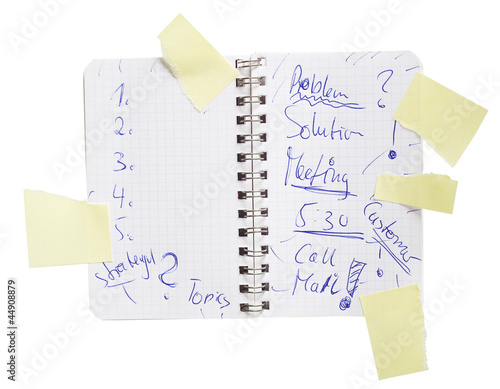 1.
2.
3.
4.
5.
Strategy ?
Topics
Problem ?
Solution !
Meeting
5:30 Customer
Call !
Mail !
44908879